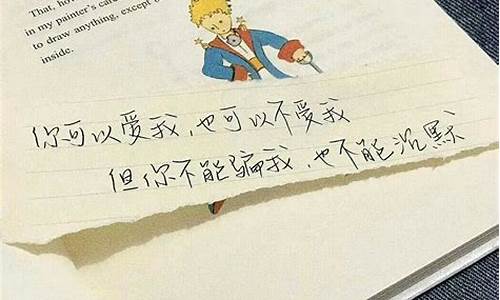 That, how
in my painter's car
to draw anything, except
inside.
你可以爱我,也可以不爱我
但你不能骗我,也不能沉默